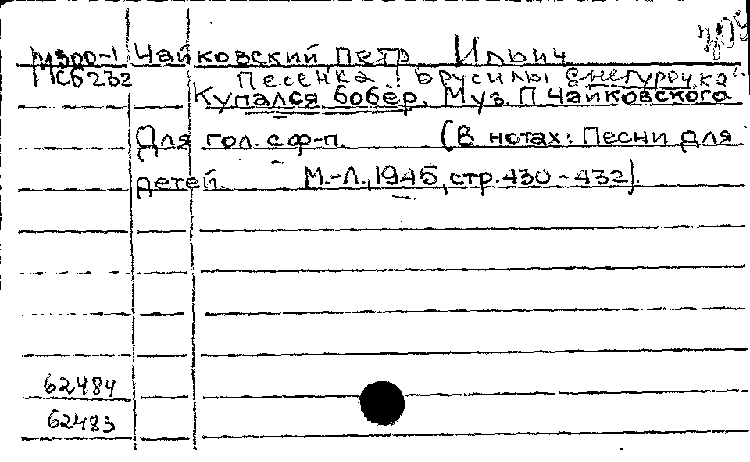 М300-1 Чайковский, Петр Ильич
МС6232 Песенка Брусилы "Снегурочка"
Купался бобёр. Муз. П. Чайковского
Для гол. с ф-п. (В нотах: Песни для
детей. М.-Л., 1945, стр. 430-432).
62484
62483